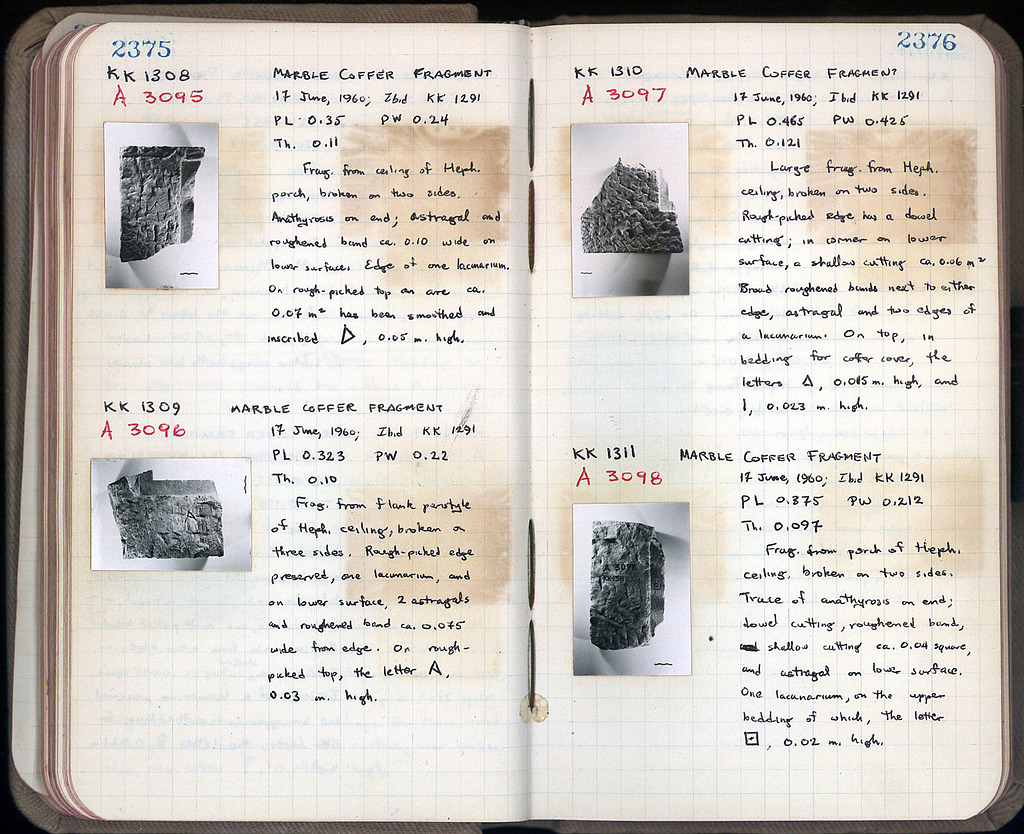 2375
KK 1308 MARBLE COFFER FRAGMENT
A 3095 17 June, 1960; Ibid KK 1291
PL 0.35 PW 0.24
Th. 0.11
Frag. from ceiling of Heph.
porch, broken on two sides.
Anathyrosis on end; astragal and
roughened band ca. 0.10 wide on
lower surface. Edge of one lacunarium.
On rough-picked top an are ca.
0.07 m² has been smoothed and
inscribed ▷, 0.05 m. high.
KK 1309 MARBLE COFFER FRAGMENT
A 3096 17 June, 1960; Ibid KK 1291
PL 0.323 PW 0.22
Th. 0.10
Frag. from flank peristyle
of Heph. ceiling, broken on
three sides. Rough-picked edge
preserved, one lacunarium, and
on lower surface, 2 astragals
and roughened band ca. 0.075
wide from edge. On rough-
picked top, the letter A,
0.03 m. high.
2376
KK 1310 MARBLE COFFER FRAGMENT
A 3097 17 June, 1960; Ibid KK 1291
PL 0.465 PW 0.425
Th. 0.121
Large frag. from Heph.
ceiling, broken on two sides.
Rough-picked edge has a dowel
cutting; in corner on lower
surface, a shallow cutting ca. 0.06 m²
Broad roughened bands next to either
edge, astragal and two edges of
a lacunarium. On top, in
bedding for coffer cover, the
letters Δ, 0.015 m. high, and
I, 0.023 m. high.
KK 1311 MARBLE COFFER FRAGMENT
A 3098 17 June, 1960; Ibid KK 1291
PL 0.375 PW 0.212
Th. 0.097
Frag. from porch of Heph.
ceiling. broken on two sides.
Trace of anathyrosis on end;
dowel cutting, roughened band,
shallow cutting ca. 0.04 square,
and astragal on lower surface.
One lacunarium, on the upper
bedding of which, the letter
⊡, 0.02 m. high.
A 3098